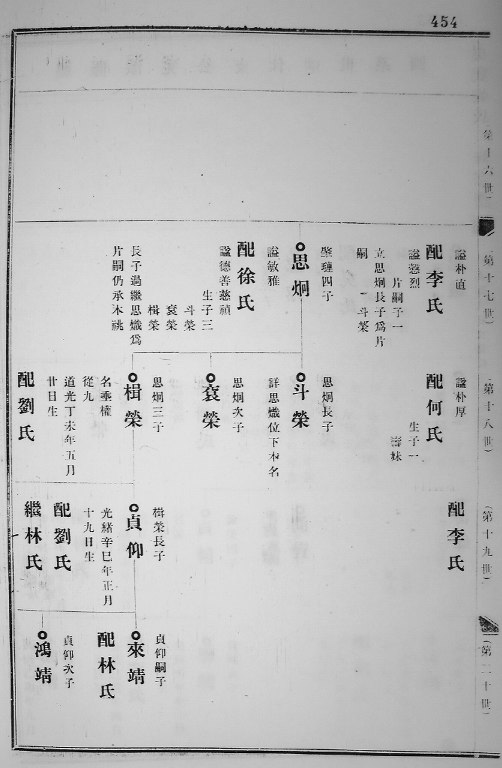 454
(第十六世)
(第十七世)
(第十八世)
(第十九世)
(第二十世)
謚朴直
配李氏
謚懿烈
片嗣子一
立思炯長子爲片
嗣 斗榮
四子
思炯
謚敏雅
配徐氏
謚德善慈禎
生子三
斗榮
袞榮
楫榮
長子過繼思熾爲
片嗣仍承本祧
謚朴厚
配何氏
生子一
壽妹
思炯長子
斗榮
詳思熾位下本名
思炯次子
袞榮
思炯三子
楫榮
名乘權
從九
道光丁未年五月
廿日生
配劉氏
配李氏
楫榮長子
貞仰
光緒辛巳年正月
十九日生
配劉氏
繼林氏
貞仰嗣子
來靖
配林氏
貞仰次子
鴻靖